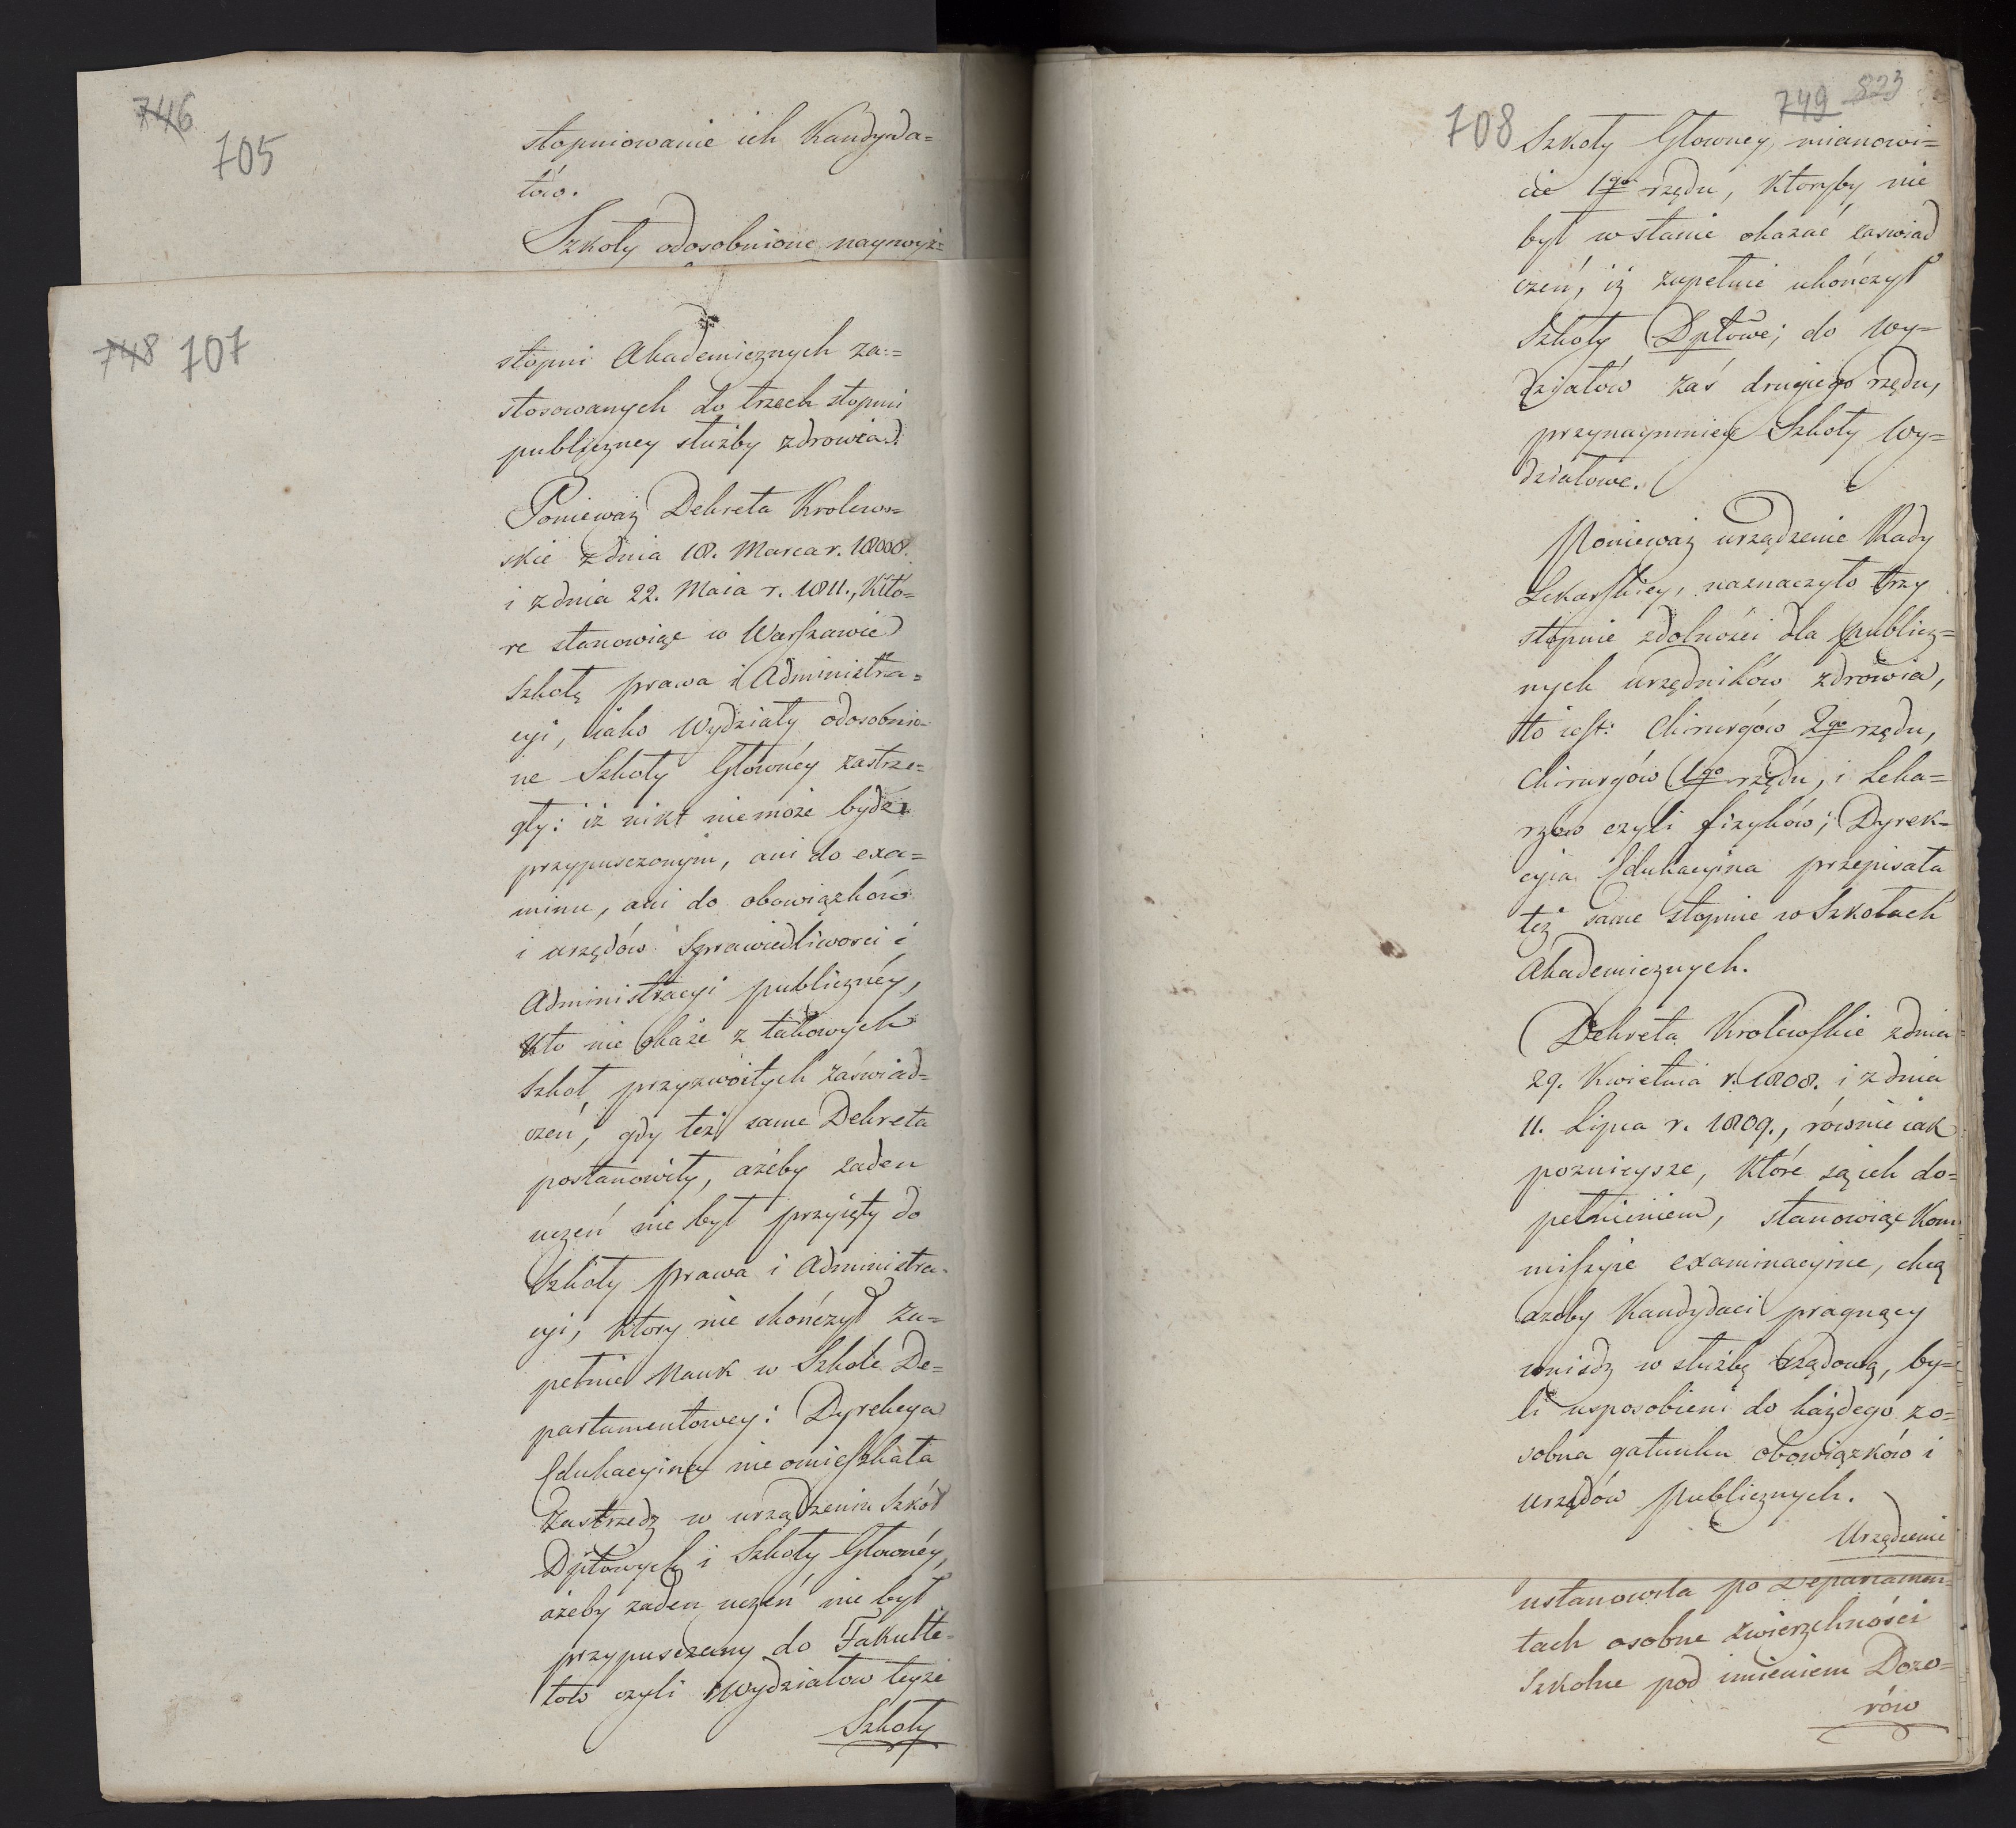 746
705
stopniowanie ich Kandyda=
tów.
Szkoły odosobnione naywyż=
748 707
stopni Akademicznych za=
stosowanych do trzech stopni
publiczney służby zdrowia.
Ponieważ Dekreta Krolew=
skie z dnia 18. Marca r. 1808.
i z dnia 22. Maia r. 1811., Któ=
re stanowiąc w Warszawie
Szkołę prawa i Administra=
cyi, iako Wydziały odosobnio=
ne Szkoły Głównéy zastrze=
gły: iż nikt niemoże bydź
przypusczonym, ani do exa=
minu, ani do obowiązków
i urzędów Sprawiedliwości i
Administracyi publicznéy,
Kto nie okaże z takowych
Szkoł przyzwoitych zaświad=
czeń, gdy też same Dekreta
postanowiły, ażeby żaden
uczeń nie był przyięty do
Szkoły prawa i Administra=
cyi, ktory nie skończył zu=
pełnie Nauk w Szkole De=
partamentowey: Dyrekcya
Edukacyina nie omieszkała
Zastrzedz w urządzeniu Szkół
Dptowych i Szkoły Głownéy,
ażeby żaden uczeń nie był
przypusczany do Fakulte=
tów czyli Wydziałow teyże
Szkoły
749 823
708
Szkoły Głowney, mianowi=
cie 1go rzędu, ktoryby nie
był w stanie okazać zaswiad
czeń, iż zupełnie ukończył
Szkoły Dptowe; do Wy=
działów zaś drugiego rzędu,
przynaymniey Szkoły Wy=
działowe.
Ponieważ urządzenie Rady
Lekarskiey, naznaczyło trzy
stopnie zdolności dla publicz=
nych urzędników zdrowia,
to iest: Chirurgów 2go rzędu,
Chirurgów 1go rzędu, i Leka=
rzow czyli fizyków; Dyrek=
cyia Edukacyina przepisała
też same stopnie w Szkołach
Akademicznych.
Dekreta Krolewskie z dnia
29. Kwietnia r. 1808. i z dnia
11. Lipca r. 1809., równie iak
poznieysze, Które są ich do=
pełnieniem, stanowiąc Kom=
missyie examinacyine, chcą
ażeby Kandydaci pragnący
wnisdz w służbę rządową, by=
li usposobieni do każdego zo=
sobna gatunku obowiązków i
urzędów publicznych.
Urządzenie
ustanowiła po Departamen=
tach osobne zwierzchności
Szkolne pod imieniem Dozo=
rów